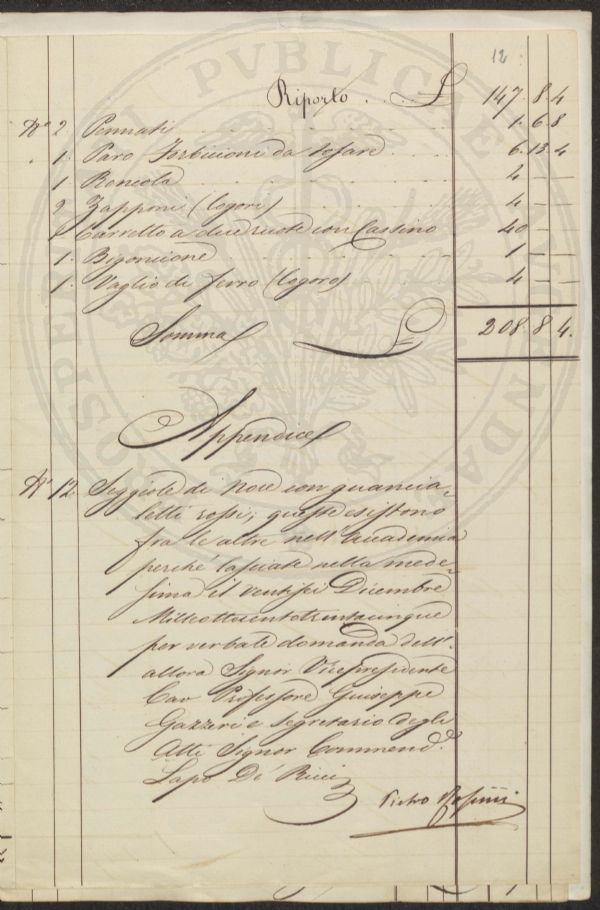 12
Riporto . . . £ 147. 8. 4
N.º 2 Pennati 1. 6. 8
" 1. Paro Forbicioni da tosare 6. 13. 4
1 Roncola 4 — —
2 Zapponi (logori) 4 — —
1 Carretto a due ruote con Castino 40 — —
1. Bigoncione 1 — —
1. Vaglio di ferro (logoro) 4 — —
Somma £ 208. 8. 4.
Appendice
N.º 12 Seggiole di Noce con guancia=
letti rossi; queste esistono
fra le altre nell'Accademia
perché lasciate nella mede=
sima il ventisei Dicembre
Milleottocentotrentacinque
per verbale domanda dell'
allora Signor Vicepresidente
Cav Professore Giuseppe
Gazzeri e Segretario degli
Atti Signor Commend.e
Lapo De' Ricci
Pietro
PVBLICAE